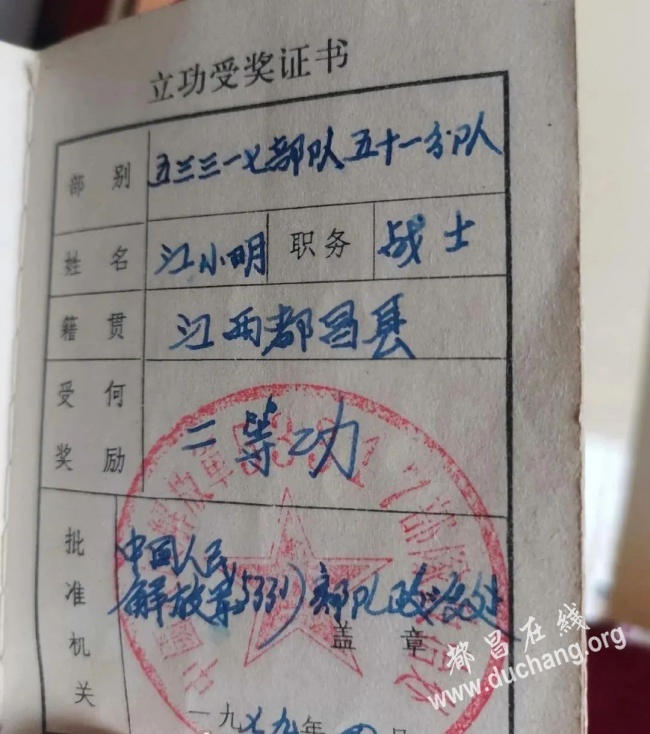 立功受奖证书
部别 五三三一七部队五十一分队
姓名 江小明 职务 战士
籍贯 江西都昌县
受何奖励 二等功
批准机关 中国人民
解放军53317部队政治处
盖章
一九七九年四月
都昌在线
www.duchang.org